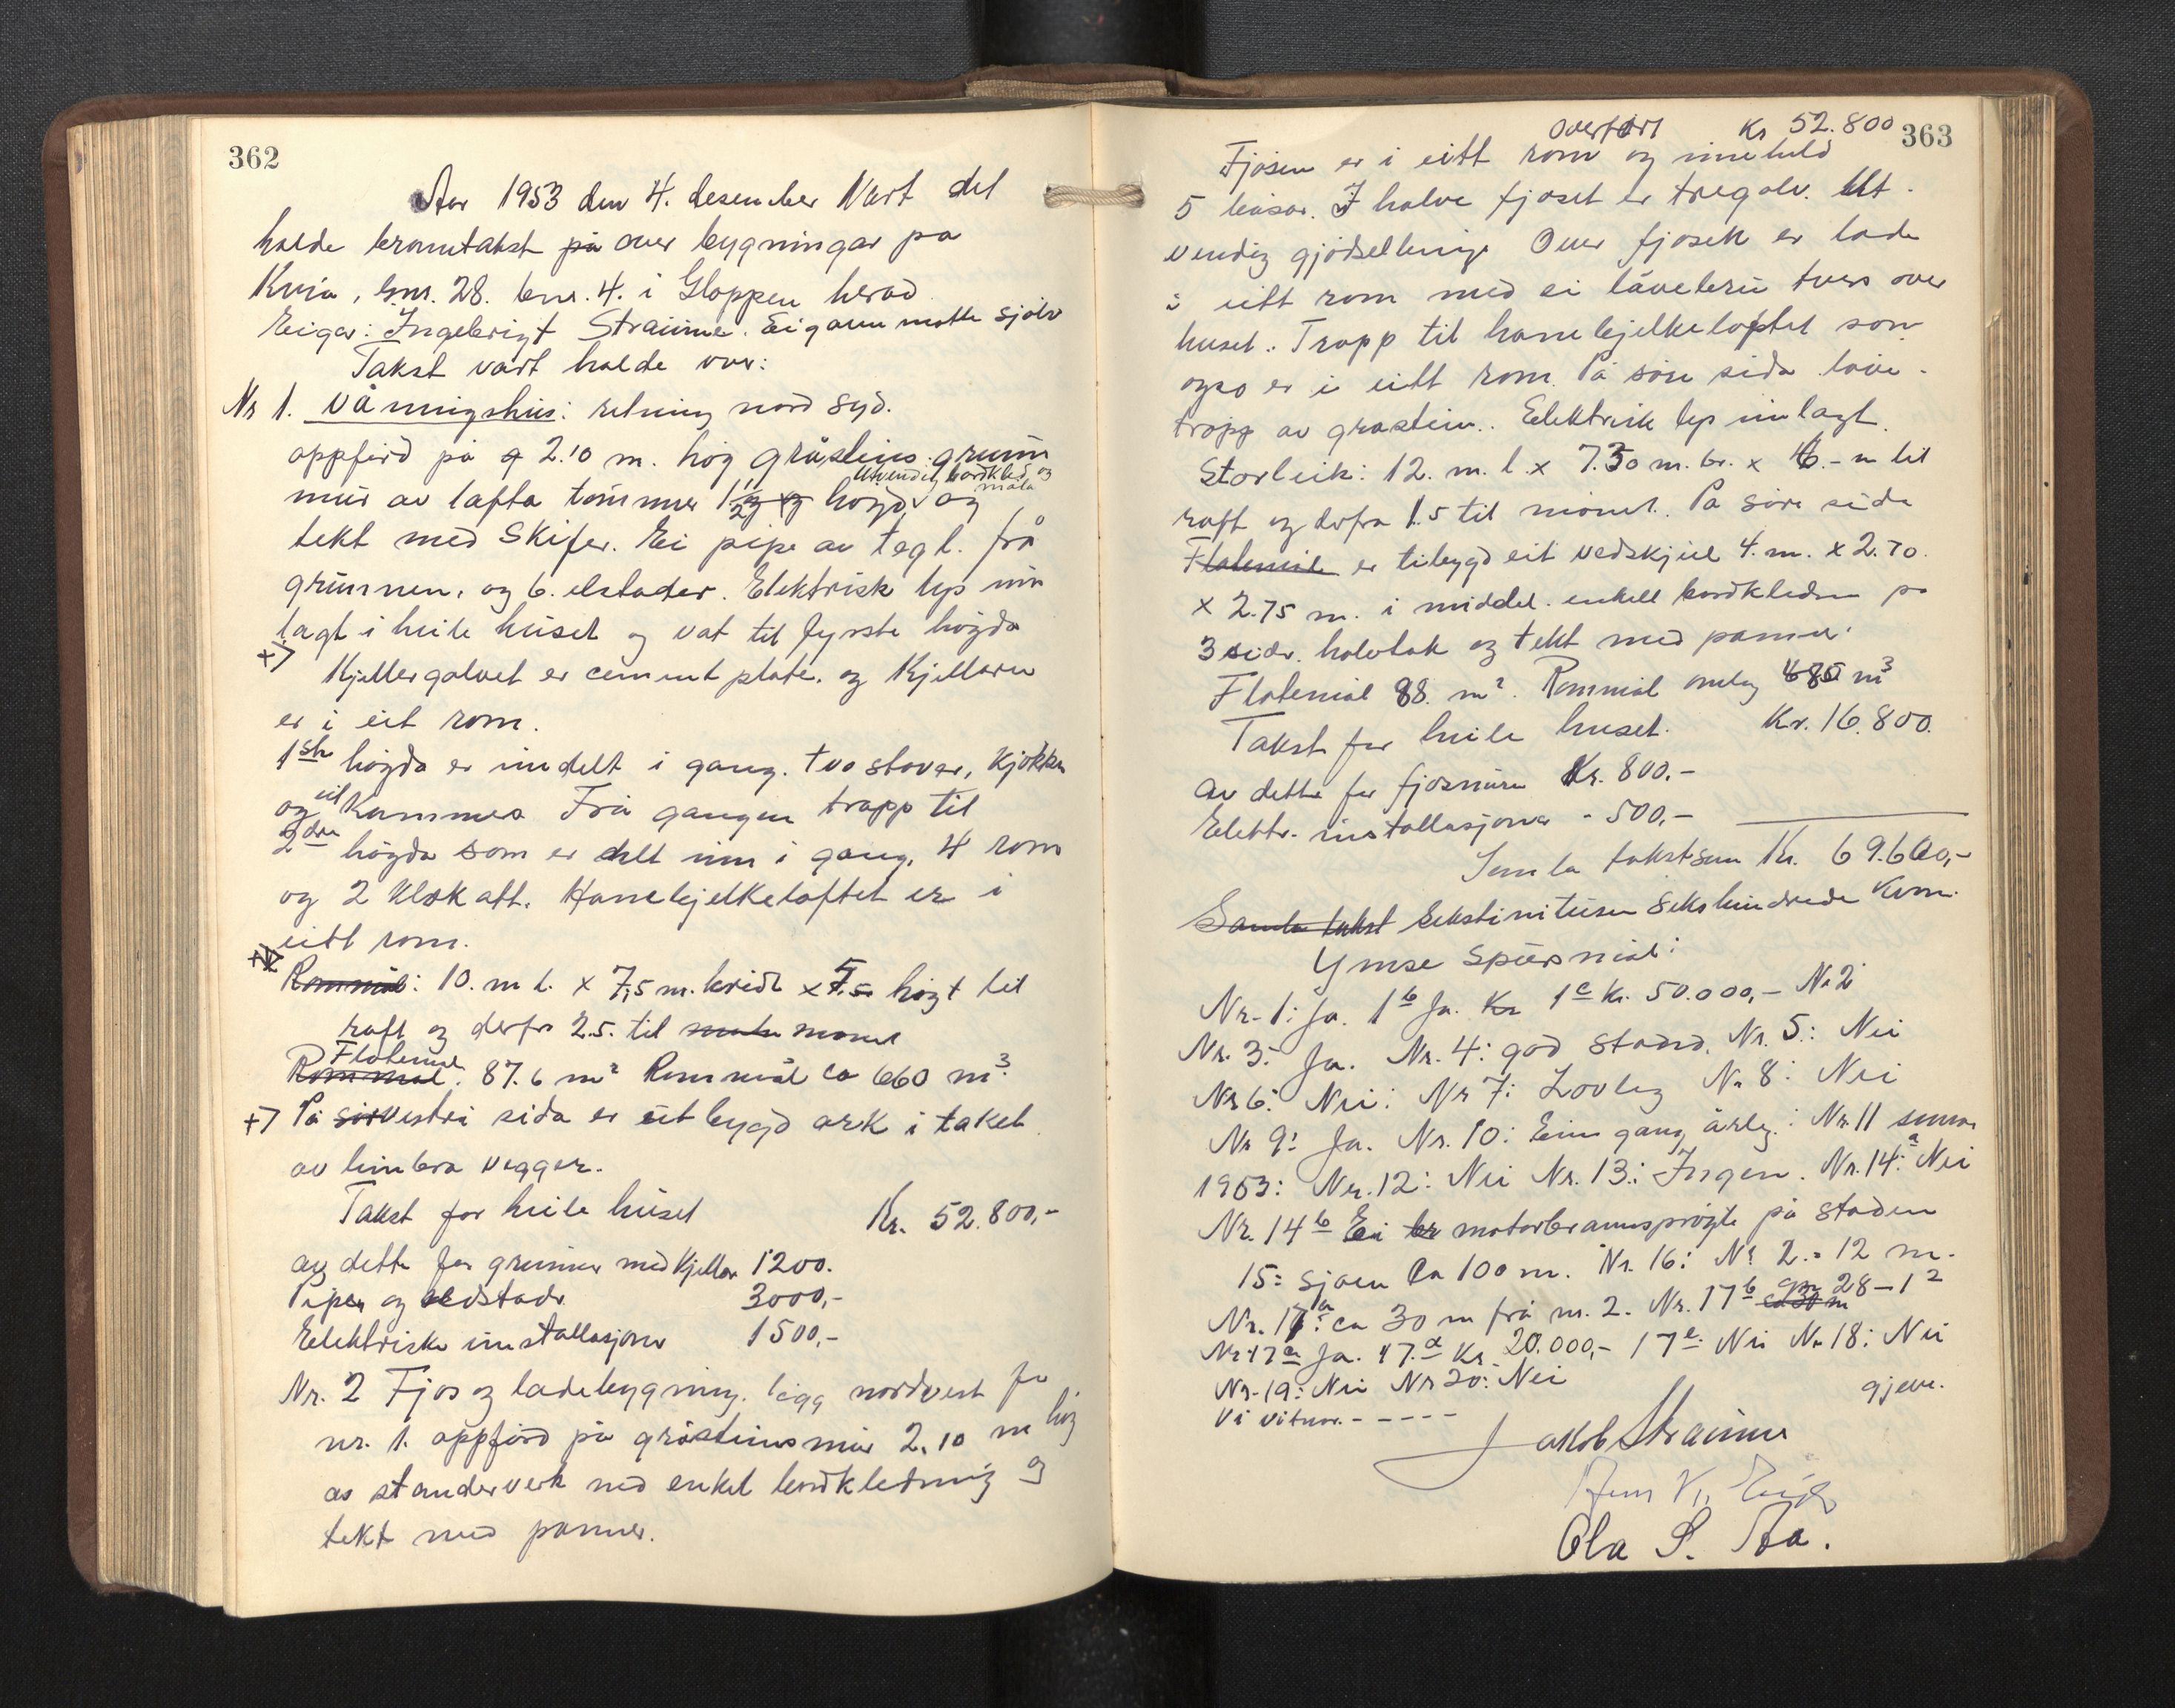 362
Aar 1953 den 4. desember Vart det
halde branntakst på over bygningar pa
Kvia, gnr. 28. bnr. 4. i Gloppen herad
Eigar: Ingebrigt Straume. Eigaren møtte sjølv
Takst vart halde over:
Nr 1. Våningshus: retning nord syd.
oppførd på 2.10 m. høg gråsteins grunn
utvendig bordkled og
mur av lafta tømmer 1 1/2 høgd, og måla
tekt med Skifer. Ei pipe av tegl. frå
grunnen, og 6. elstader. Elektrisk lys inn
lagt i heile huset og vat til fyrste høgda
+7
Kjellergolvet er cement plate. og Kjellaren
er i eit rom.
1ste høgda er inndelt i gang. tvo stover, kjøkken
og eit Kammes Frå gangen trapp til
2dre høgda som er delt inn i gang, 4 rom
og 2 kleskott. Hanebjelkeloftet er i
eitt rom.
Rommål: 10. m l. x 7,5 m. breidt x 5 høgt til
raft og derfra 2.5. til mønet
Flatemål
Rommål. 87.6 m² Rommål ca 660 m³.
+7 På vestri sida er utbygd ark i taket
av bimbra vegger.
Takst for heile huset Kr. 52.800,-
av dette for grunnen med Kjellar 1200.
Pipen og eldstader 3000,-
Elektriske installasjoner 1500,-
Nr. 2 Fjos og ladebygning. ligg nordvest for
nr. 1. oppførd på gråsteinsmur 2.10 m høg
av standerverk med enkel bordkledning og
tekt med panner.
363
Overført Kr 52.800
Fjøsen er i eitt rom og inneheld
5 båsar. I halve fjøset er tregolv. Ut-
vendig gjødselbinge Over fjøsen er lade
i eitt rom med ei låvebru tvers over
huset. Trapp til hanebjelkeloftet som
ogso er i eitt rom. På søre sida låve-
tropp av gråstein. Elektrisk lys innlagt.
Storleik: 12. m. l. x 7.30 m. br. x 6.- m til
raft og derfra 1.5 til mønet. På søre side
Flatemål er tilbygd eit vedskjul 4. m. x 2.70.
x 2.75 m. i middel. enkelt bordkledn på
3 sider. halvtak og tekt med panner.
Flatemål 98. m². Rommål omlag 680 m³
Takst for heile huset. Kr. 16.800.
av dette for fjøsmuren Kr. 800.-
Elektr. installasjoner - 500,-
Samla takstsum Kr. 69.600,-
Samla takst Sekstinitusen sekshundrede Kron.
Ymse Spørsmål:
Nr. 1: Ja. 1b Ja. Kr 1c Kr. 50.000,- N. 2
Nr. 3: Ja. Nr. 4: god stand. Nr. 5: Nei
Nr 6: Nei: Nr 7: Lovleg Nr 8: Nei
Nr 9: Ja. Nr. 10: Ein gang årleg: Nr. 11 sumar
1953: Nr. 12: Nei Nr. 13: Ingen. Nr. 14a: Nei
Nr. 14b Ei motorbrannsprøyte på staden
15: sjøen ca 100 m. Nr. 16: Nr 2. = 12 m.
Nr. 17a: ca 30 m frå nr. 2. Nr. 17b gnr 28-12
Nr 17c Ja. 17.d Kr. 20.000,- 17e. Nei Nr 18: Nei
Nr. 19: Nei Nr 20: Nei
gjeve.
Vi vitnar - - - - -
Jakob Straume
Ola S. Aa.